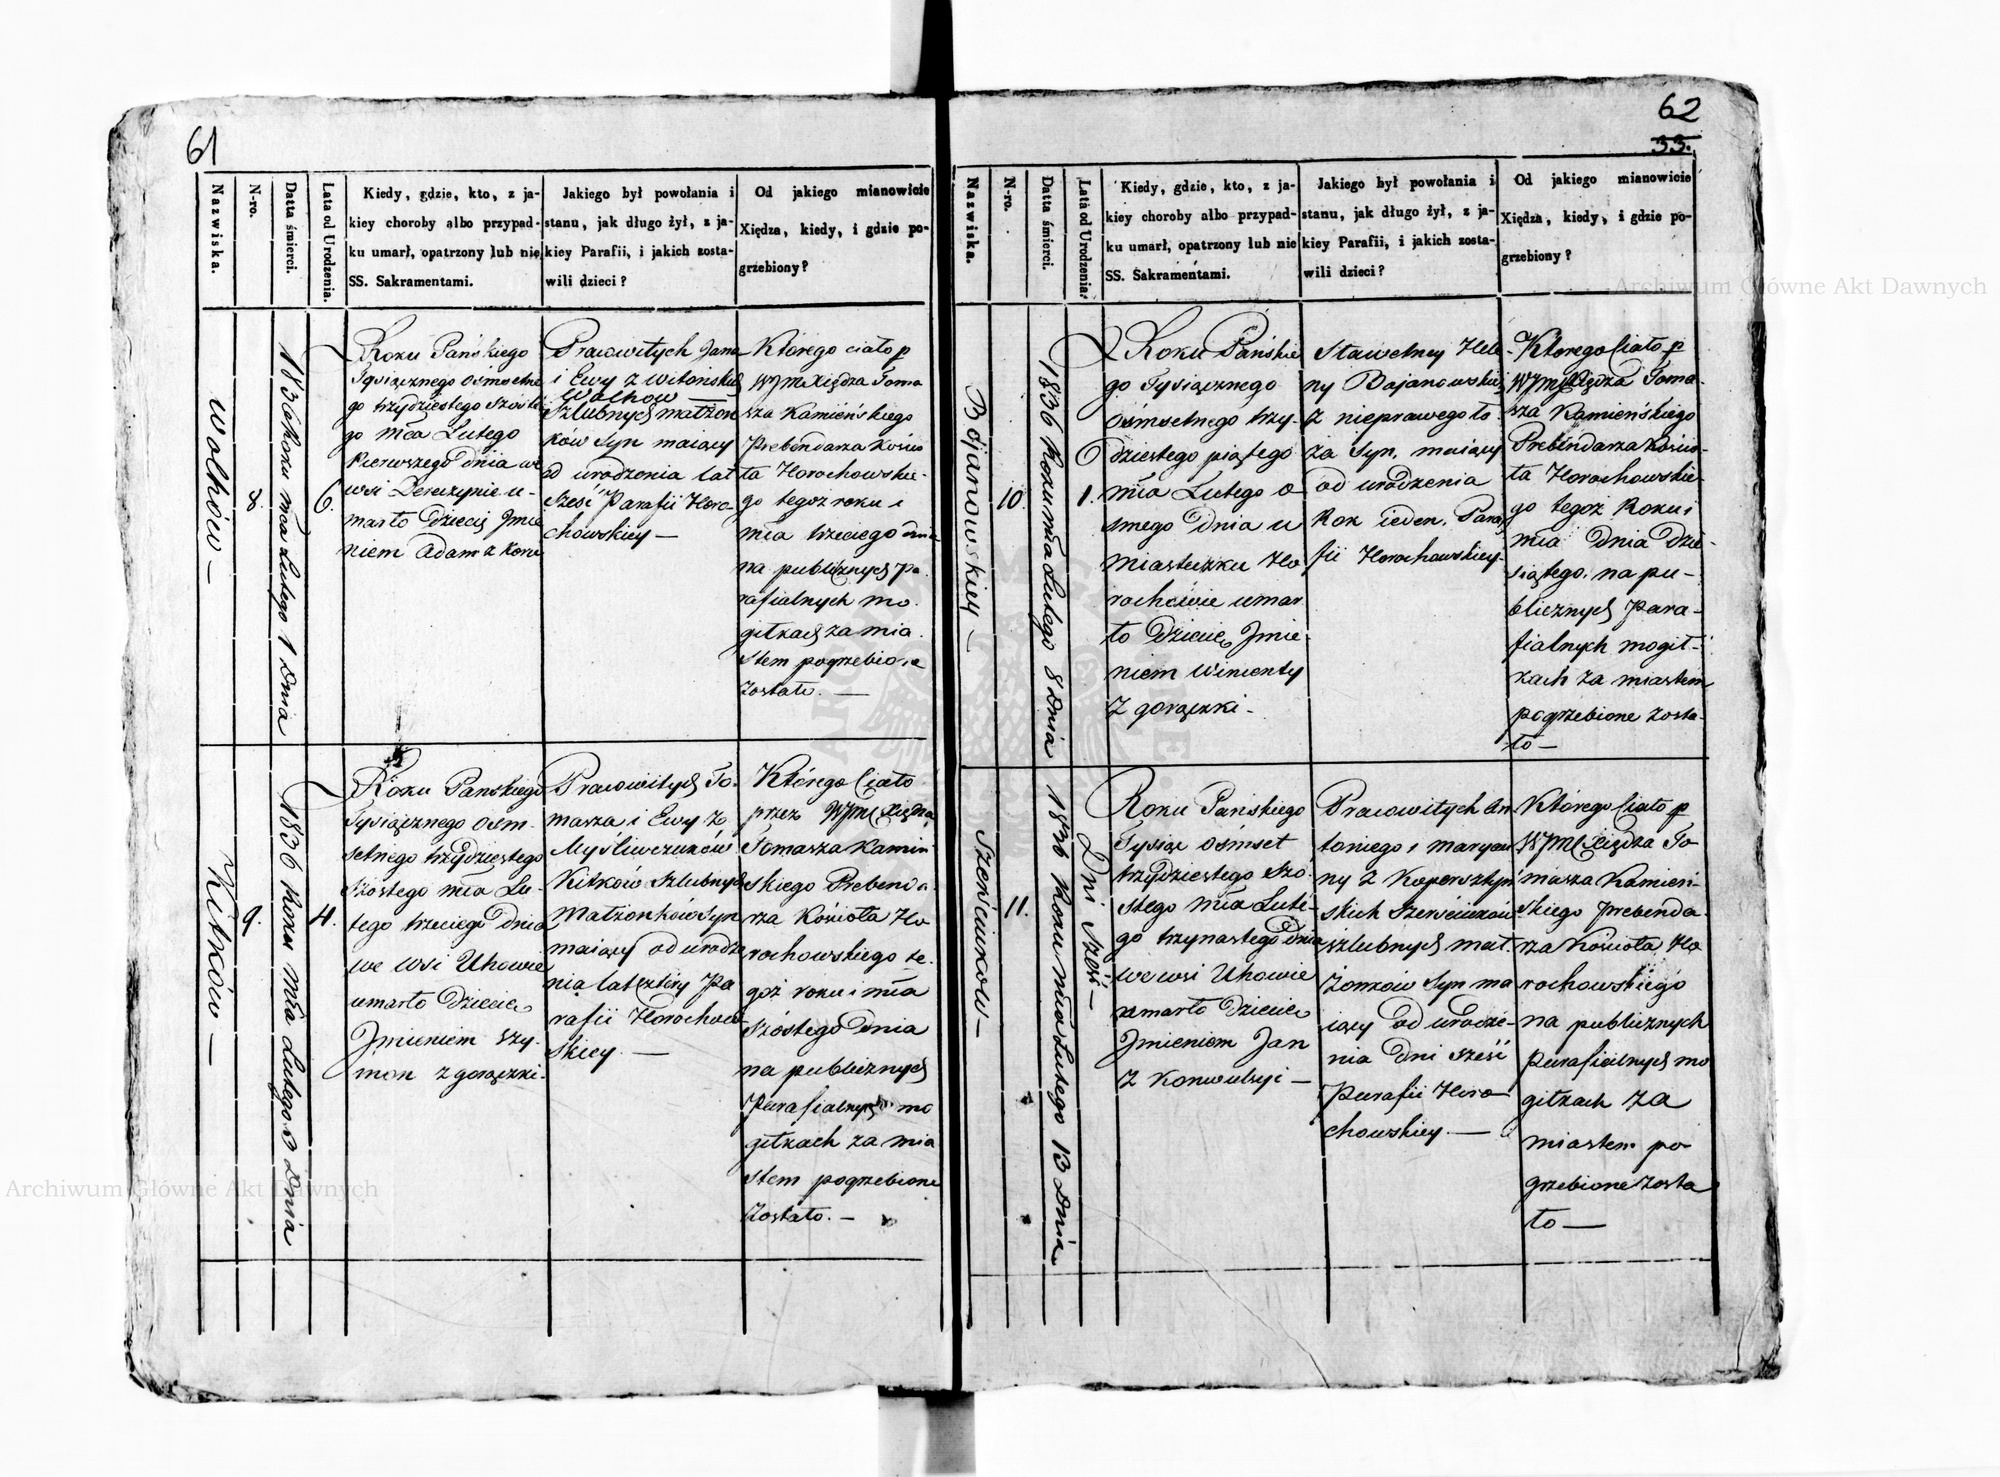 61
Nazwiska.
N-ro.
Datta śmierci.
Lata od Urodzenia.
Kiedy, gdzie, kto, z ja-
kiey choroby albo przypad-
ku umarł, opatrzony lub nie
SS. Sakramentami.
Jakiego był powołania i
stanu, jak długo żył, z ja-
kiey Parafii, i jakich zosta-
wili dzieci?
Od jakiego mianowicie
Xiędza, kiedy, i gdzie po-
grzebiony?
Wolków —
8.
1836 Roku mca Lutego 1 Dnia
6.
Roku Pańskiego
Tysiącznego ośmsetne
go trzydziestego szóste
go mca Lutego
pierwszego dnia we
wsi Dereczynie u-
marło Dziecię Jmie
niem Adam z koru
Pracowitych Jana
i Ewy z Witońskich
Wolków —
Szlubnych małżon
ków Syn maiący
od urodzenia lat
sześć Parafii Horo-
chowskiey —
Którego ciało p
WJmXiędza Toma
sza Kamieńskiego
Prebendarza Kościo
ła Horochowskie-
go tegoż roku i
mca trzeciego dnia
na publicznych pa
rafialnych mo.
giłkach za mia.
stem pogrzebione
zostało. —
Kitków —
9.
1836 Roku mca Lutego 3 Dnia
4.
Roku Panskiego
Tysiącznego ośm-
setnego trzydziestego
szóstego mca Lu-
tego trzeciego Dnia
we wsi Uhowie
umarło Dziecie
Jmieniem Szy-
mon z gorączki.
Pracowitych To-
masza i Ewy z
Myśliwczuków
Kitków Szlubnych
Małżonków Syn
maiący od urodze
nia lat cztery Pa
rafii Horochow-
skiey. —
Którego Ciało
przez WJmXiędza
Tomasza Kamin
skiego Prebenda
rza Kościoła Ho
rochowskiego te.
goż roku i mca
szóstego Dnia
na publicznych
Parafialnych mo
giłkach za mia
stem pogrzebione
zostało. —
62
33.
Nazwiska.
N-ro.
Datta śmierci.
Lata od Urodzenia.
Kiedy, gdzie, kto, z ja-
kiey choroby albo przypad-
ku umarł, opatrzony lub nie
SS. Sakramentami.
Jakiego był powołania i
stanu, jak długo żył, z ja-
kiey Parafii, i jakich zosta-
wili dzieci?
Od jakiego mianowicie
Xiędza, kiedy, i gdzie po-
grzebiony?
Bojanowskiey —
10.
1836 Roku mca Lutego 8 Dnia
1.
Roku Pańskie
go Tysiącznego
ośmsetnego trzy-
dziestego piątego
mca Lutego o-
smego Dnia u
miasteczku Ho
rochowie umar
ło Dziecie Jmie-
niem Wincenty
z gorączki -
Sławetney Hele
ny Bojanowskiey
z nieprawego ło
ża Syn, maiący
od urodzenia
Rok ieden, Para
fii Horochowskiey
Którego Ciało p
WJmXiędza Toma-
sza Kamieńskiego
Prebendarza Kościo-
ła Horochowskie-
go tegoż Roku i
mca Dnia Dzie-
siątego, na pu-
blicznych Para-
fialnych mogił-
kach za miastem
pogrzebione zosta-
ło —
Szewciuków —
11.
1836 Roku mca Lutego 13 Dnia
Dni Sześć —
Roku Pańskiego
Tysiąc ośmset
trzydziestego Szó
stego mca Lute-
go trzynastego Dnia
we wsi Uhowie
umarło Dziecie
Jmieniem Jan
z Konwulsyi —
Pracowitych An
toniego i Maryan
ny z
skich Szewciuków
szlubnych mał.
żonków Syn ma
iący od urodze-
nia Dni sześć
Parafii Horo
chowskiey. —
Którego Ciało p
WJmXiędza To
masza Kamień-
skiego prebenda-
rza Kościoła Ho
rochowskiego
na publicznych
Parafialnych mo
giłkach za
miastem po-
grzebione zosta
ło —
Archiwum Główne Akt Dawnych
Archiwum Główne Akt Dawnych